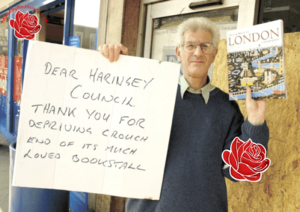 DEAR HARINGEY
COUNCIL
THANK YOU FOR
DEPRIVING CROUCH
END OF ITS MUCH
LOVED BOOKSTALL
LONDON